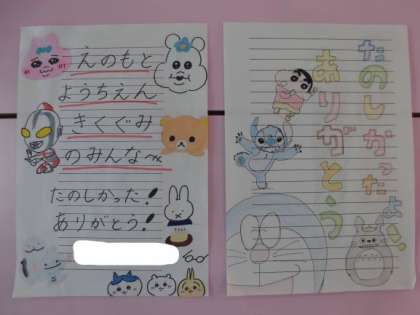 えのもと
ようちえん
きくぐみ
のみんなへ
たのしかった!
ありがとう!
たのしかったよ!
ありがとう